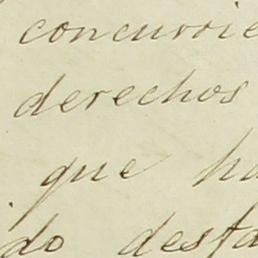 concurrie
derechos
que ha
do desfa